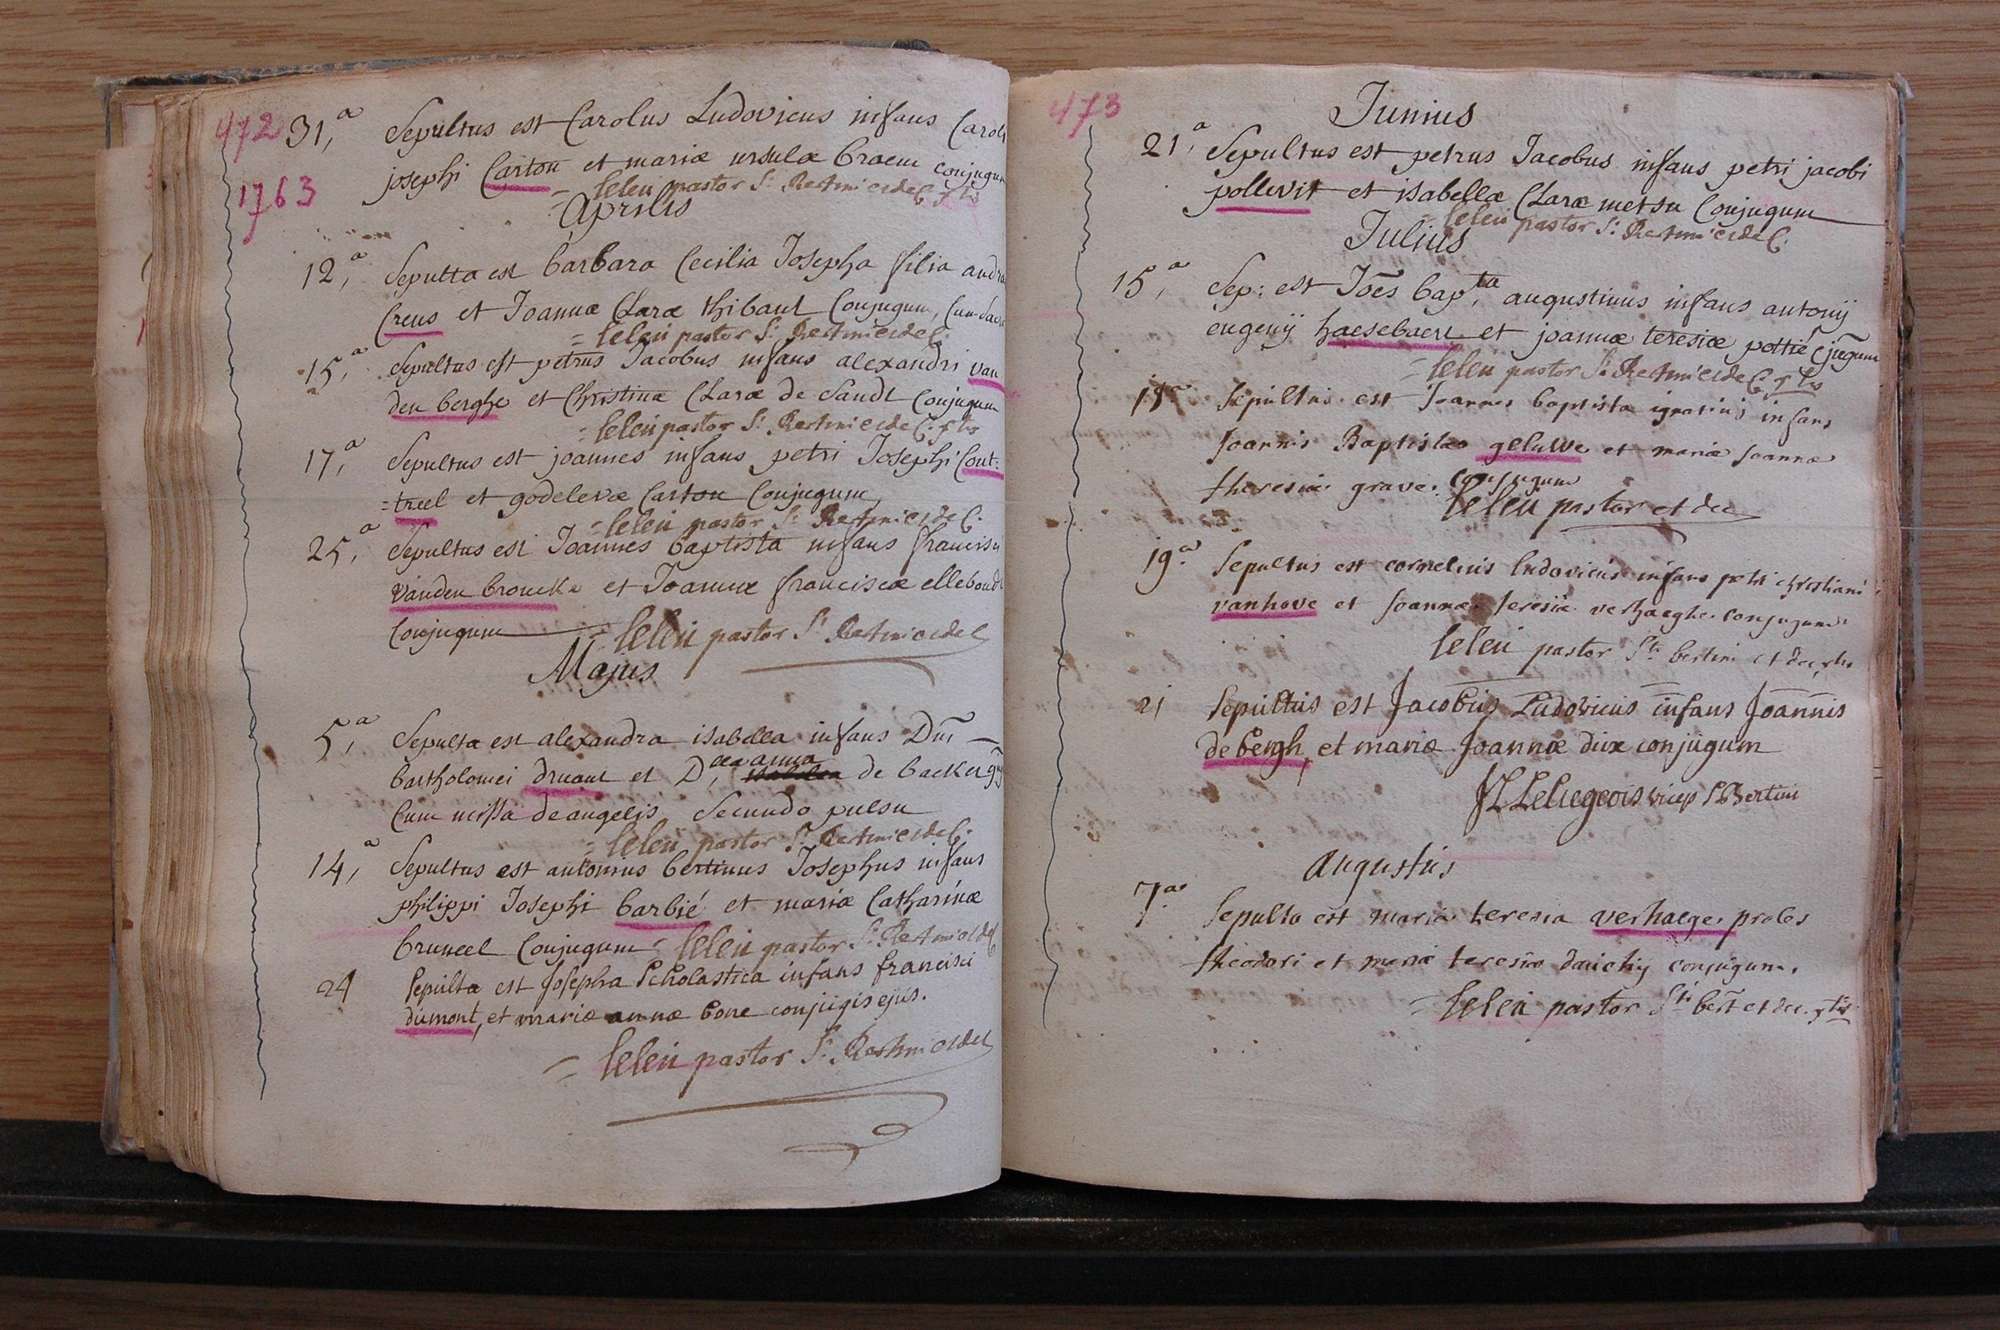 472
1763
31,a Sepultus est Carolus Ludovicus infans Caroli
josephi Carton et mariæ ursulæ braem conjugum
= leleu pastor St Bertini et dec. xtis
Aprilis
12,a Sepulta est barbara Cecilia Josepha filia andreæ
Creus et Joannæ Claræ thibaut Conjugum,
= leleu pastor St Bertini et dec
15,a Sepultus est petrus Jacobus infans alexandri van
den berghe et Christinæ Claræ de Sandt Conjugum
= leleu pastor St Bertini et dec. xtis
17,a Sepultus est joannes infans petri Josephi Cout=
=treel et godelevæ Carton Conjugum,
= leleu pastor St Bertini et dec.
25,a Sepultus est Joannes baptista infans francisci
vanden broucke et Joannæ franciscæ elleboudt
Conjugum = leleu pastor St Bertini et dec
Majus
5,a Sepulta est alexandra isabella infans Dni
bartholomei druant et D.cæ anna de backer
Cum missa de angelis Secundo pulsu
= leleu pastor St Bertini et dec.
14,a Sepultus est antonius bertinus Josephus infans
philippi Josephi barbié et mariæ Catharinæ
bruneel Conjugum = leleu pastor St Bertini et dec
24 Sepulta est Josepha Scholastica infans francisci
dumont, et mariæ annæ bone conjugis ejus.
= leleu pastor St Bertini et dec
473
Junius
21,a Sepultus est petrus Jacobus infans petri jacobi
pollevit et isabellæ Claræ metsu Conjugum
= leleu pastor St Bertini et dec.
Julius
15,a Sep: est Joes bapta, augustinus infans antonij
eugenij haesebaert et joannæ teresiæ pottié Cjugum
= leleu pastor St Bertini et dec. xtis
18a Sepultus est Joannes baptista ignatius infans
Joannis Baptistæ geluwe et mariæ Joannæ
theresiæ grave. conjugum
leleu pastor et dec
19.a Sepultus est cornelius ludovicus infans petri christiani
vanhove et Joannæ teresiæ verhaeghe conjugum.
leleu pastor Sti bertini et dec. xtis
21 Sepultus est Jacobus Ludovicus infans Joannis
de bergh, et mariæ Joannæ dux conjugum
JL Leliegeois vicep S Bertini
augustus
7.a Sepulta est maria teresia verhaege proles
theodori et mariæ teresiæ dauchy conjugum.
= leleu pastor Sti bert et dec. xtis